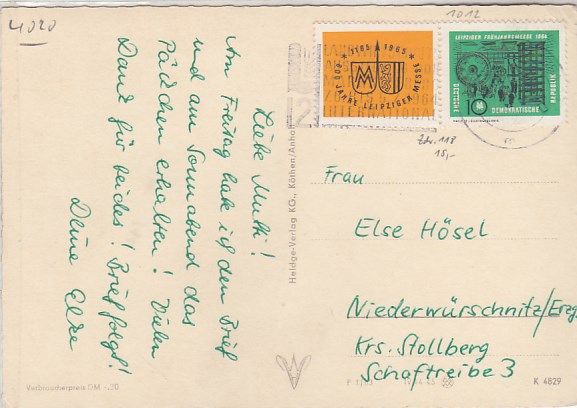 4020
1012
LEIPZIGER FRÜHJAHRSMESSE 1964
DEUTSCHE
10
DEMOKRATISCHE
REPUBLIK
1165 1965
800 JAHRE LEIPZIGER MESSE
Zdr. 118
15,-
Liebe Mutti!
Am Freitag hab ich den Brief
und am Sonnabend das
Päckchen erhalten! Vielen
Dank für beides! Brief folgt!
Deine Elke
Heldge-Verlag KG., Köthen/Anhalt
Frau
Else Hösel
Niederwürschnitz/Erzg.
Krs. Stollberg
Schafreibe 3
Verbraucherpreis DM -,20
K 4829